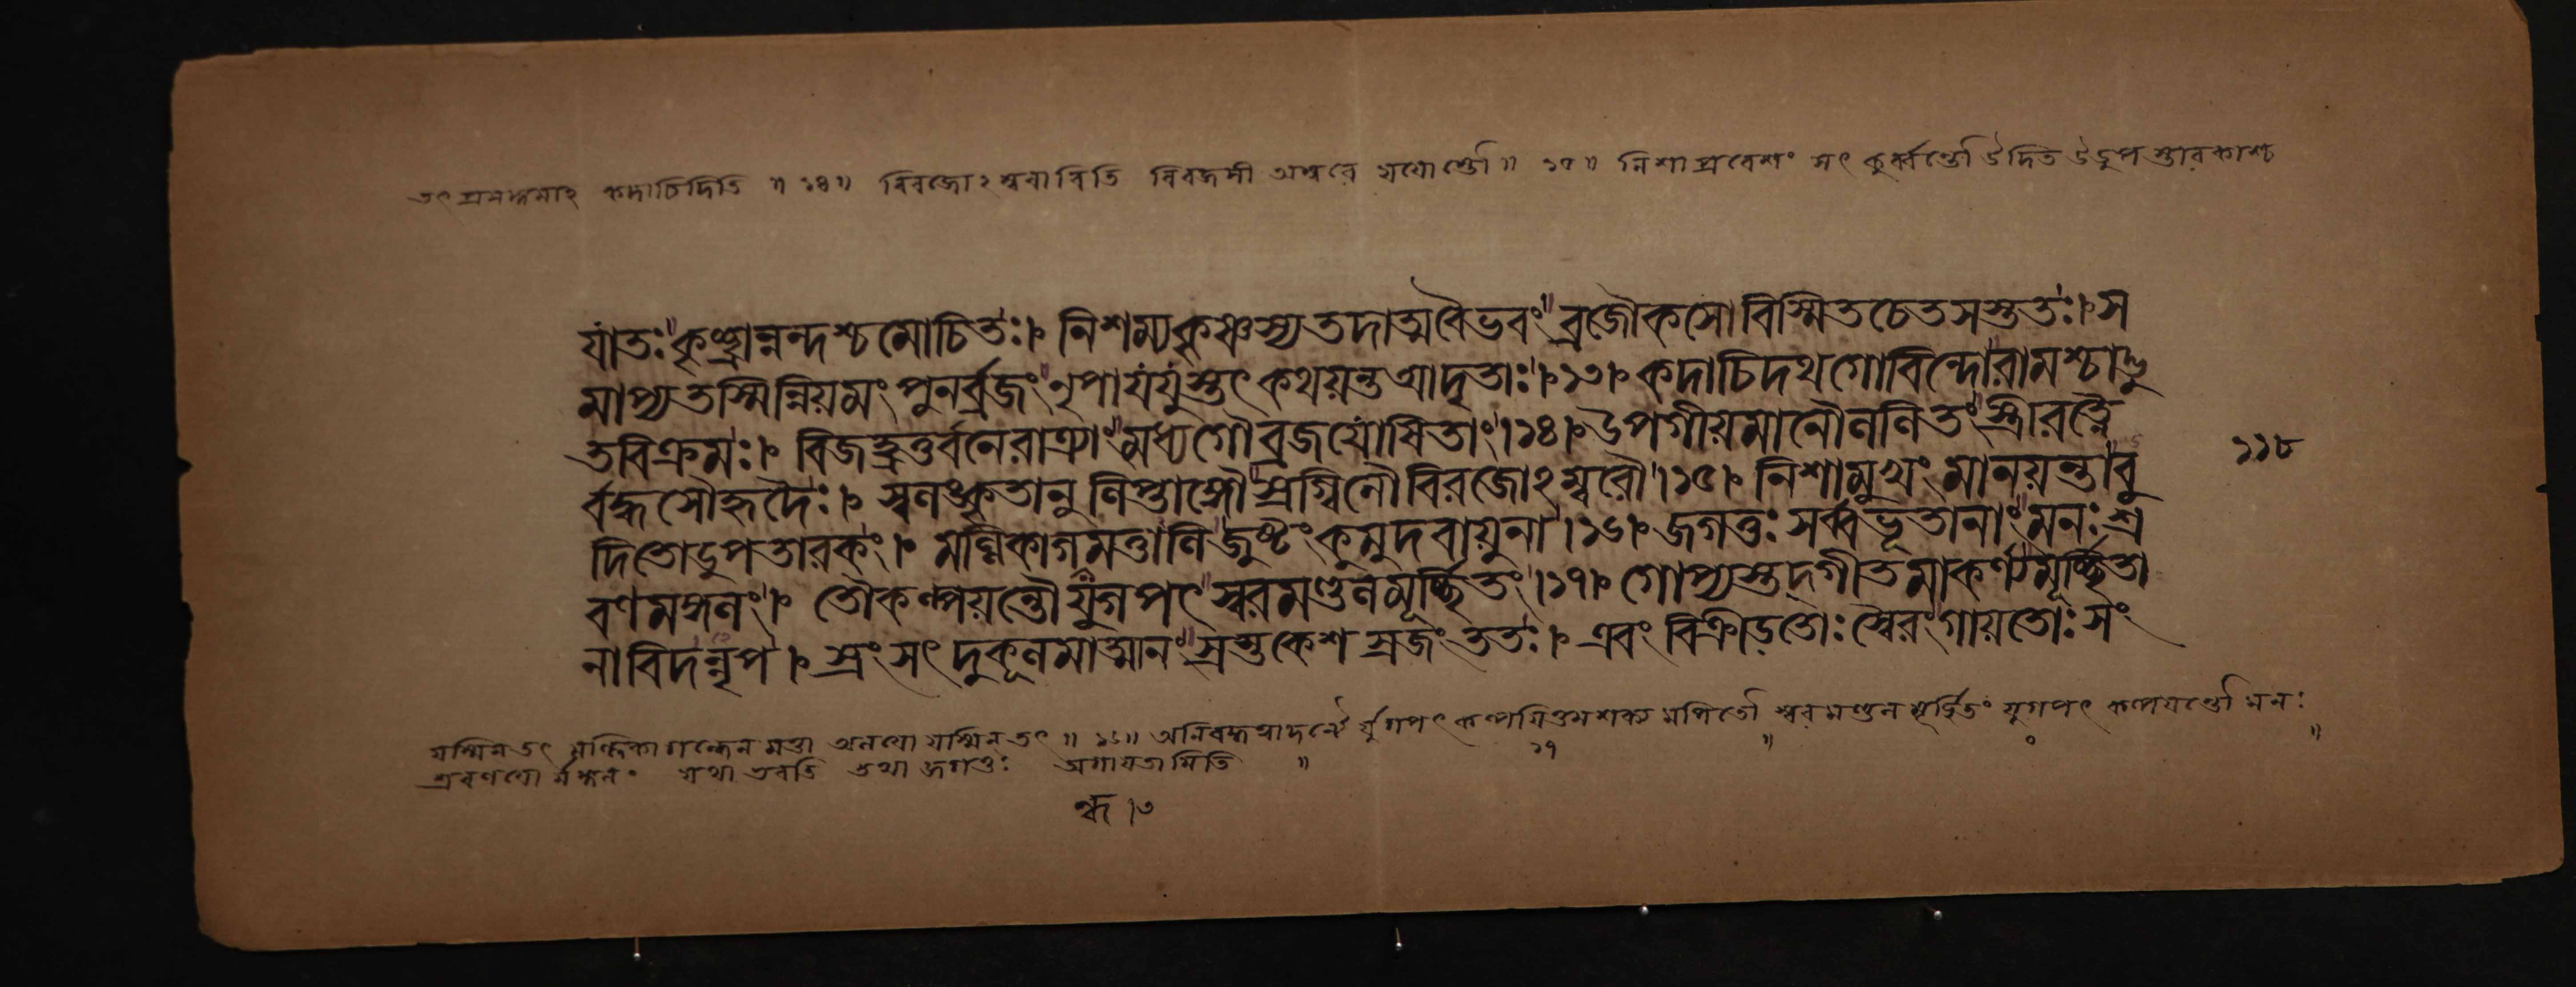 তৎ প্রসঙ্গমাহ কদাচিদিতি ॥ ১৪ ॥ বিরজোঽম্বরাবিতি বিরজসী অম্বরে যয়োস্তৌ ॥ ১৫ ॥ নিশাপ্রবেশং সৎ কুর্ব্বন্তৌ উদিত উডুপ স্তারকাশ্চ
যাতঃ কৃচ্ছ্রান্নন্দশ্চমোচিতঃ। নিশম্যকৃষ্ণস্যতদাত্মবৈভবং ব্রজৌকসো বিস্মিতচেতসস্ততঃ। স
মাপ্যতস্মিন্নিয়মং পুনর্ব্রজং নৃপাযযুস্তৎ কথয়ন্তআদৃতাঃ।১৩। কদাচিদথগোবিন্দোরামশ্চাদ্ভু
তবিক্রমঃ। বিজহ্রতুর্বনেরাত্র্যাং মধ্যগৌব্রজযোষিতাং।১৪। উপগীয়মানৌললিতং স্ত্রীরত্নৈ
র্বদ্ধসৌহৃদৈঃ। স্বলঙ্কৃতানু লিপ্তাঙ্গৌস্রগ্বিনৌবিরজোঽম্বরৌ।১৫। নিশামুখং মানয়ন্তাবু
দিতোডুপতারকং। মল্লিকাগন্ধমত্তালি জুষ্টংকুমুদবায়ুনা।১৬। জগতুঃ সর্ব্বভূতানাং মনঃ শ্র
বণমঙ্গলং। তৌকল্পয়ন্তৌযুগপৎ স্বরমণ্ডলমূর্চ্ছিতং।১৭। গোপ্যস্তদ্গীতমাকর্ণ্যমূর্চ্ছিতা
নাবিদন্নৃপ। স্রংসৎ দুকূলমাত্মানং স্রস্তকেশ স্রজং ততঃ। এবং বিক্রীড়তোঃ স্বৈরং গায়তোঃ সং
১১৮
যস্মিন্ তৎ মল্লিকাগন্ধেন মত্তা অলয়ো যস্মিন্ তৎ ॥ ১৬ ॥ যুগপৎ কল্পয়িতুমশক্য মপি তৌ স্বরমণ্ডল মূর্চ্ছিতং যুগপৎ কল্পয়ন্তৌ মনঃ
১৭
শ্রবণয়ো র্মঙ্গলং যথা ভবতি তথা জগতুঃ অগায়তামিতি ॥